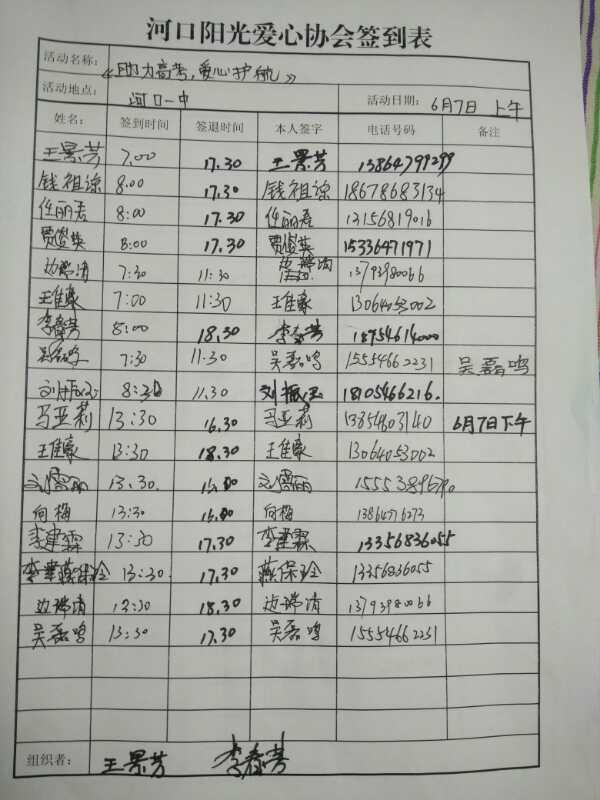 河口阳光爱心协会签到表
活动名称: 《助力高考,爱心护航》
活动地点: 河口一中 活动日期: 6月7日 上午
姓名: 签到时间 签退时间 本人签字 电话号码 备注
王景芳 7.00 17.30 王景芳 13864799299
钱祖谅 8.00 17.30 钱祖谅 18678683134
任丽君 8:00 17.30 任丽君 13156819016
贾俊英 8:00 17.30 贾俊英 15336471971
边瑞清 7:30 11:30 边瑞清 13793980066
王佳豪 7:00 11:30 王佳豪 13064053002
李春芳 8:00 18.30 李春芳 18954614000
吴磊鸣 7:30 11:30 吴磊鸣 15554662231 吴磊鸣
刘振玉 8:30 11.30 刘振玉 18105466216.
马亚莉 13:30 16.30 马亚莉 13854603140 6月7日下午
王佳豪 13:30 18.30 王佳豪 13064053002
刘雪丽 13.30. 16.00 刘雪丽
向梅 13:30 16.00 向梅 13864776273
李建霖 13:30 17.30 李建霖 13356836055
燕保玲 13:30. 17.30 燕保玲 13356836055
边瑞清 13:30 18.30 边瑞清 13793980066
吴磊鸣 13:30 17.30 吴磊鸣 15554662231
组织者: 王景芳 李春芳